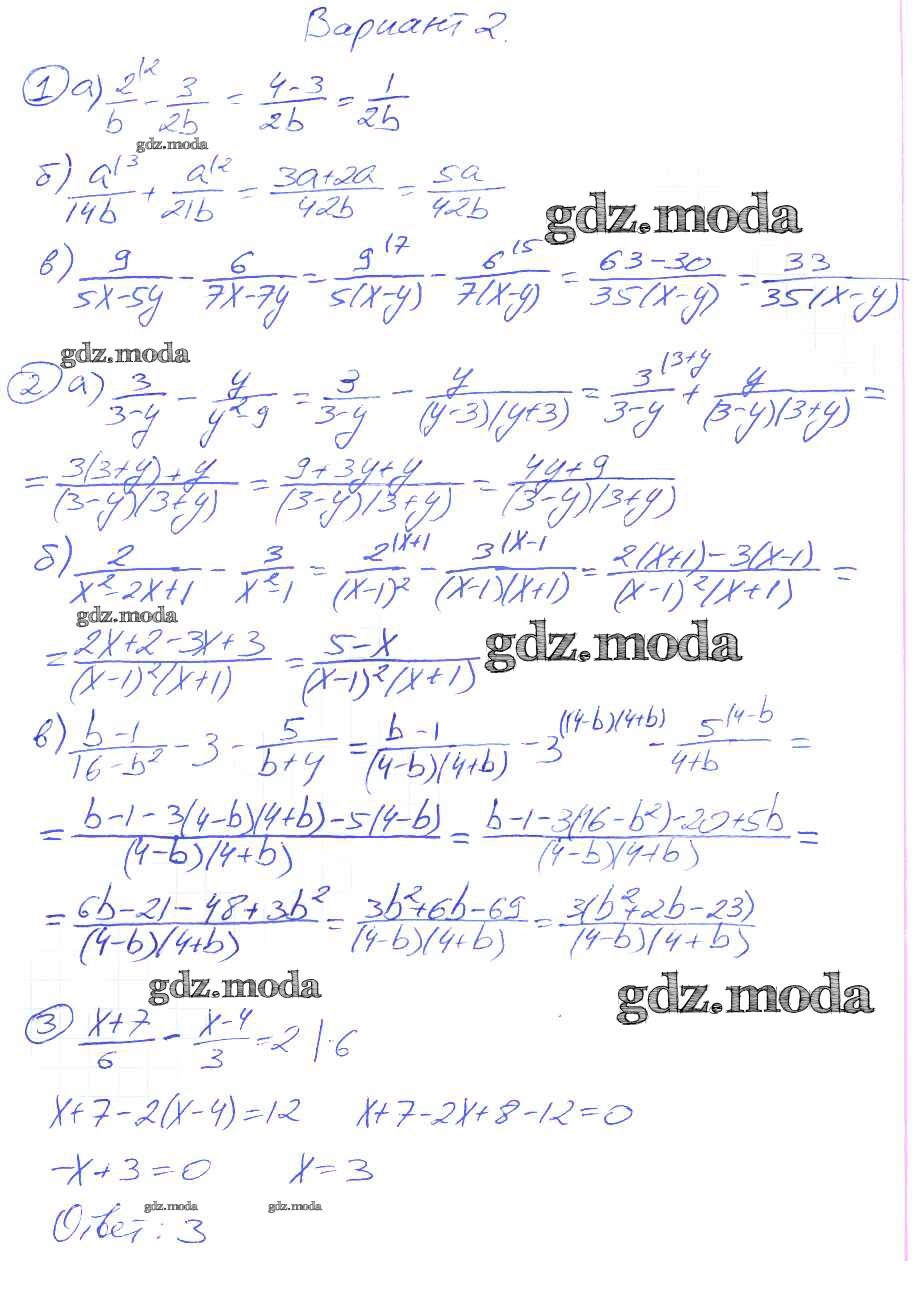 Вариант 2.
① а) 2^{|2}/b - 3/2b = (4-3)/2b = 1/2b
gdz.moda
б) a^{|3}/14b + a^{|2}/21b = (3a+2a)/42b = 5a/42b
gdz.moda
в) 9/(5x-5y) - 6/(7x-7y) = 9^{|7}/5(x-y) - 6^{|5}/7(x-y) = (63-30)/35(x-y) = 33/35(x-y)
gdz.moda
② а) 3/(3-y) - y/(y²-9) = 3/(3-y) - y/(y-3)(y+3) = 3^{|3+y}/(3-y) + y/(3-y)(3+y) =
= (3(3+y)+y)/(3-y)(3+y) = (9+3y+y)/(3-y)(3+y) = (4y+9)/(3-y)(3+y)
б) 2/(x²-2x+1) - 3/(x²-1) = 2^{|x+1}/(x-1)² - 3^{|x-1}/(x-1)(x+1) = (2(x+1)-3(x-1))/(x-1)²(x+1) =
gdz.moda
= (2x+2-3x+3)/(x-1)²(x+1) = (5-x)/(x-1)²(x+1)
gdz.moda
в) (b-1)/(16-b²) - 3 - 5/(b+4) = (b-1)/(4-b)(4+b) - 3^{|(4-b)(4+b)} - 5^{|4-b}/(4+b) =
= (b-1-3(4-b)(4+b)-5(4-b))/(4-b)(4+b) = (b-1-3(16-b²)-20+5b)/(4-b)(4+b) =
= (6b-21-48+3b²)/(4-b)(4+b) = (3b²+6b-69)/(4-b)(4+b) = 3(b²+2b-23)/(4-b)(4+b)
gdz.moda
gdz.moda
③ (x+7)/6 - (x-4)/3 = 2 |·6
x+7-2(x-4)=12 x+7-2x+8-12=0
-x+3=0 x=3
gdz.moda gdz.moda
Ответ: 3